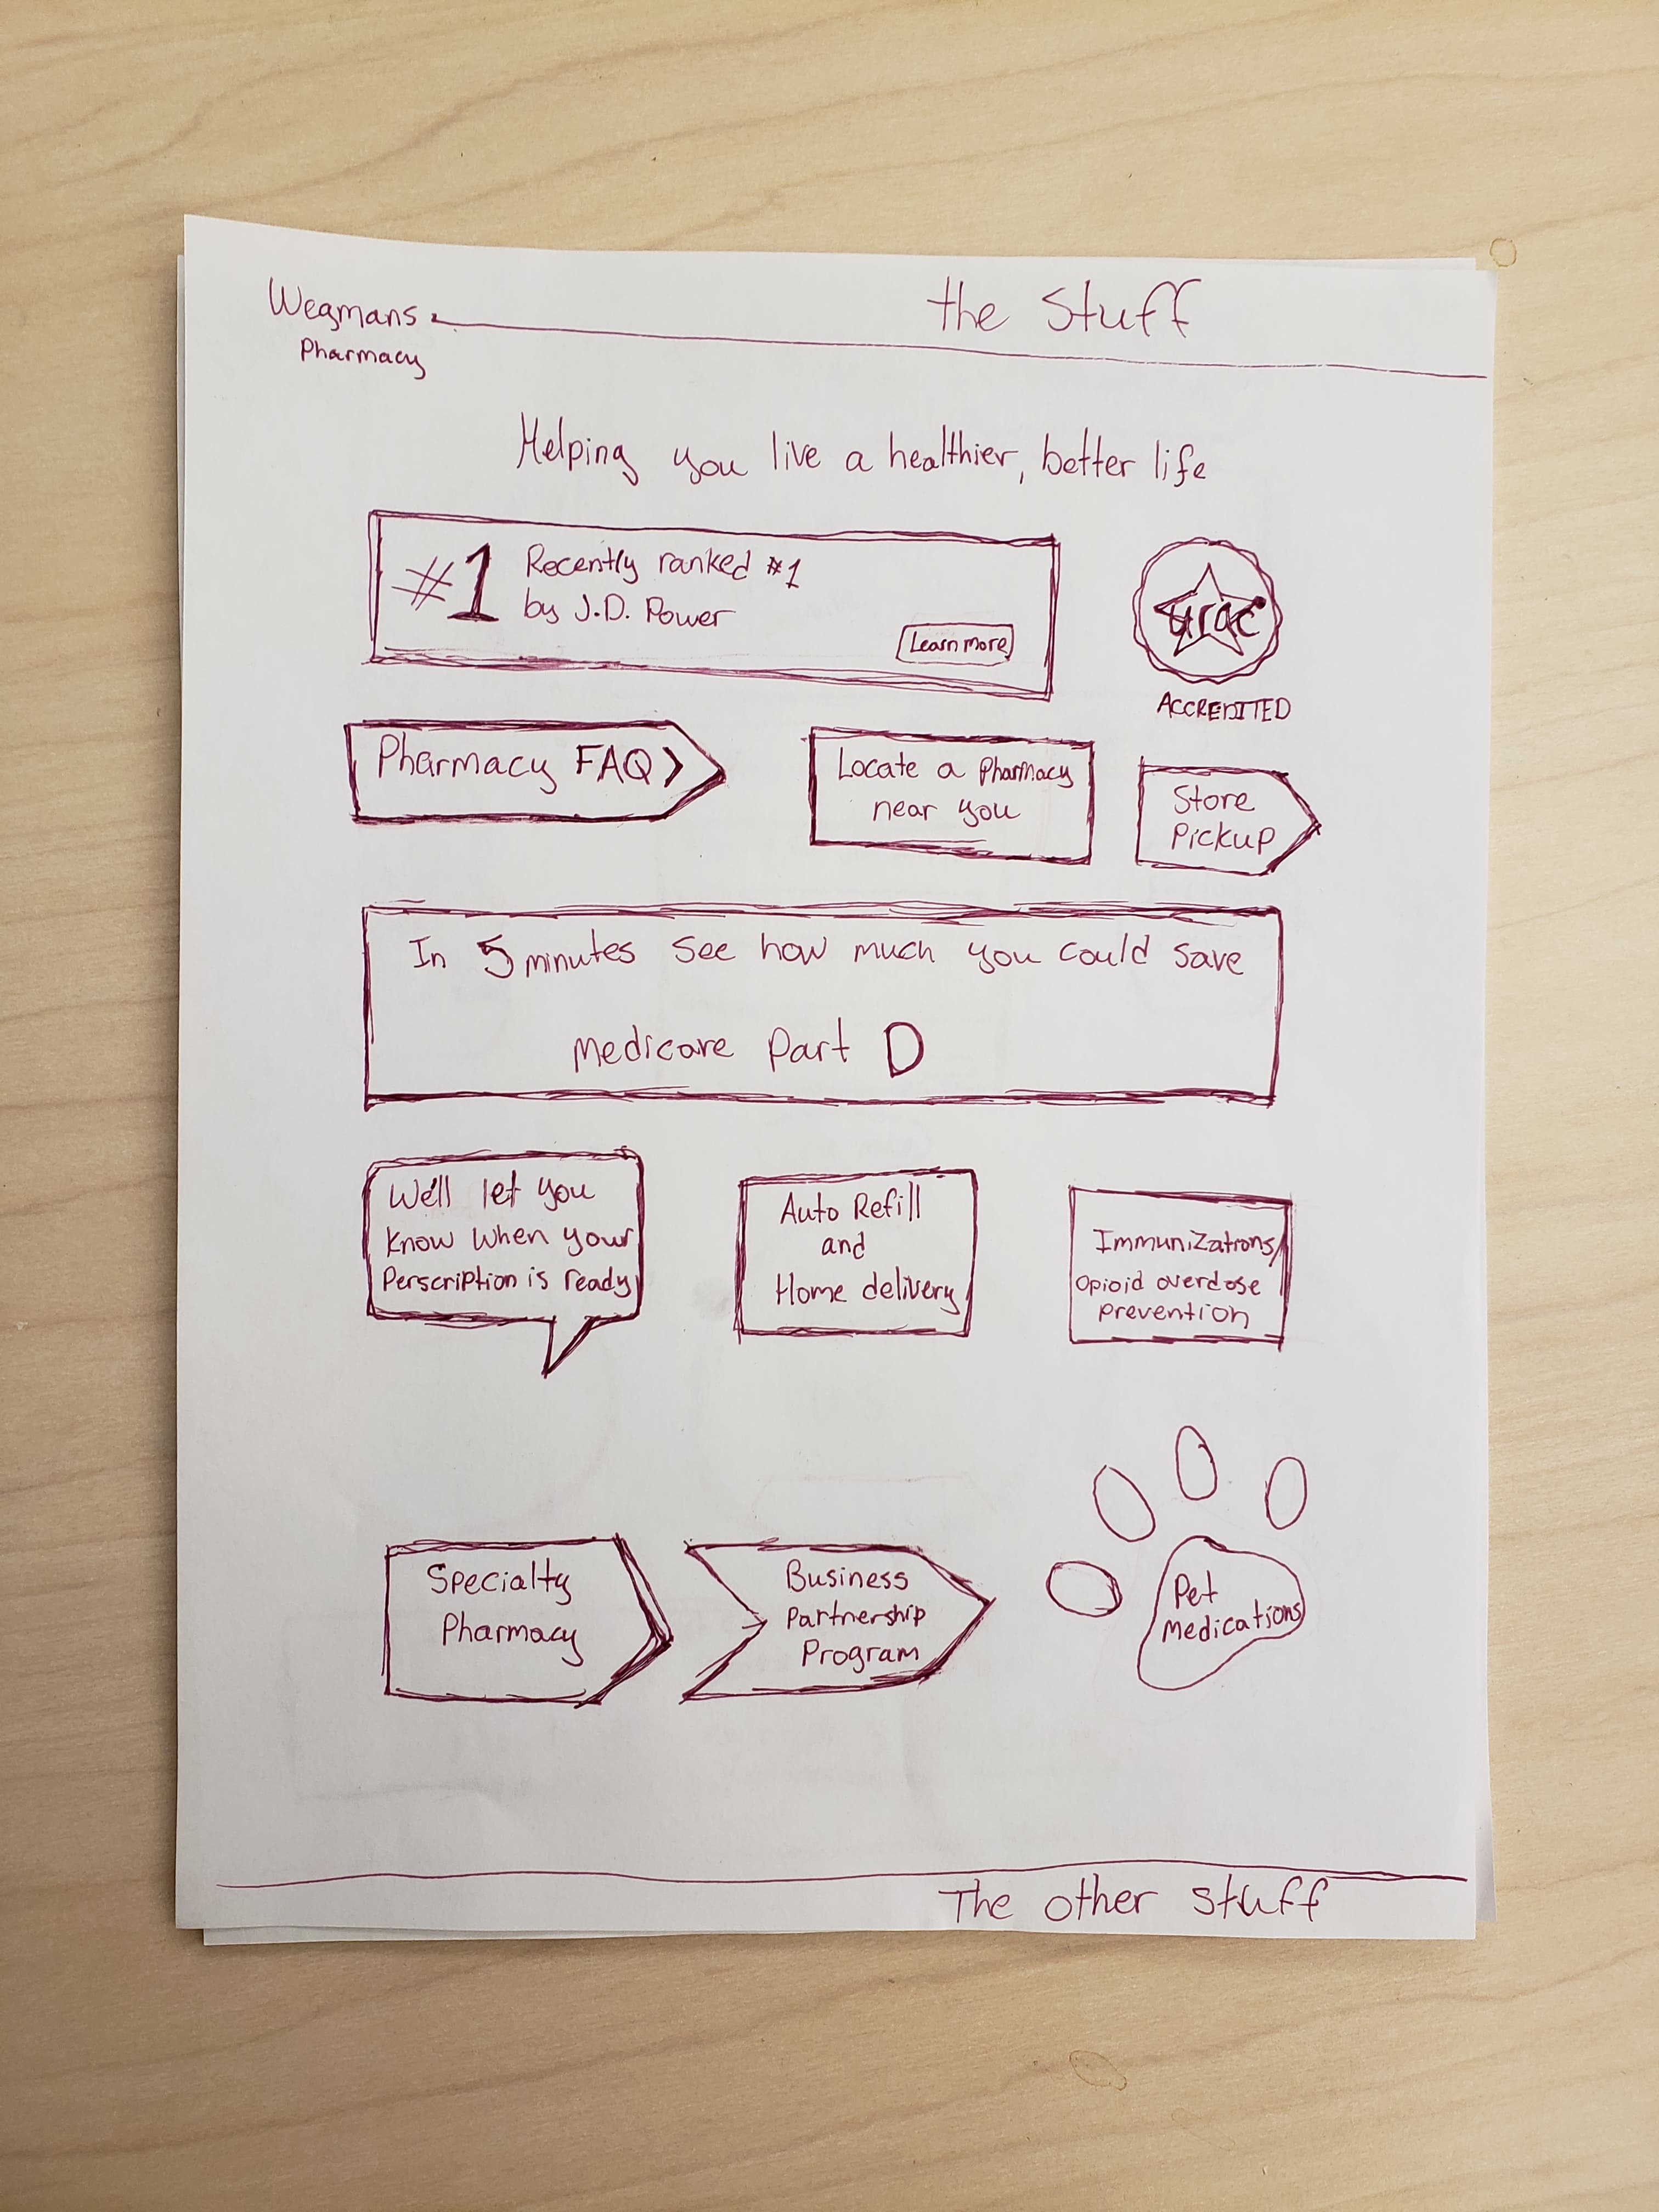 Wegmans
Pharmacy
the Stuff
Helping you live a healthier, better life
#1
Recently ranked #1
by J.D. Power
Learn more
urac
ACCREDITED
Pharmacy FAQ >
Locate a Pharmacy
near you
Store
Pickup
In 5 minutes see how much you could save
Medicare Part D
We'll let you
Know when your
Perscription is ready
Auto Refill
and
Home delivery
Immunizations/
Opioid overdose
prevention
Specialty
Pharmacy
Business
Partnership
Program
Pet
Medications
The other stuff